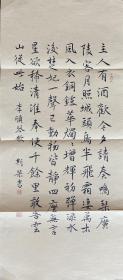 主人有酒歡今夕請奏鳴琴廣
陵客月照城頭烏半飛霜凄萬木
風入衣銅鑪華燭燭增輝初彈淥水
後楚妃一聲已動物皆靜四座無言
星欲稀清淮奉使千餘里敢告雲
山從此始 李頎琴歌 書